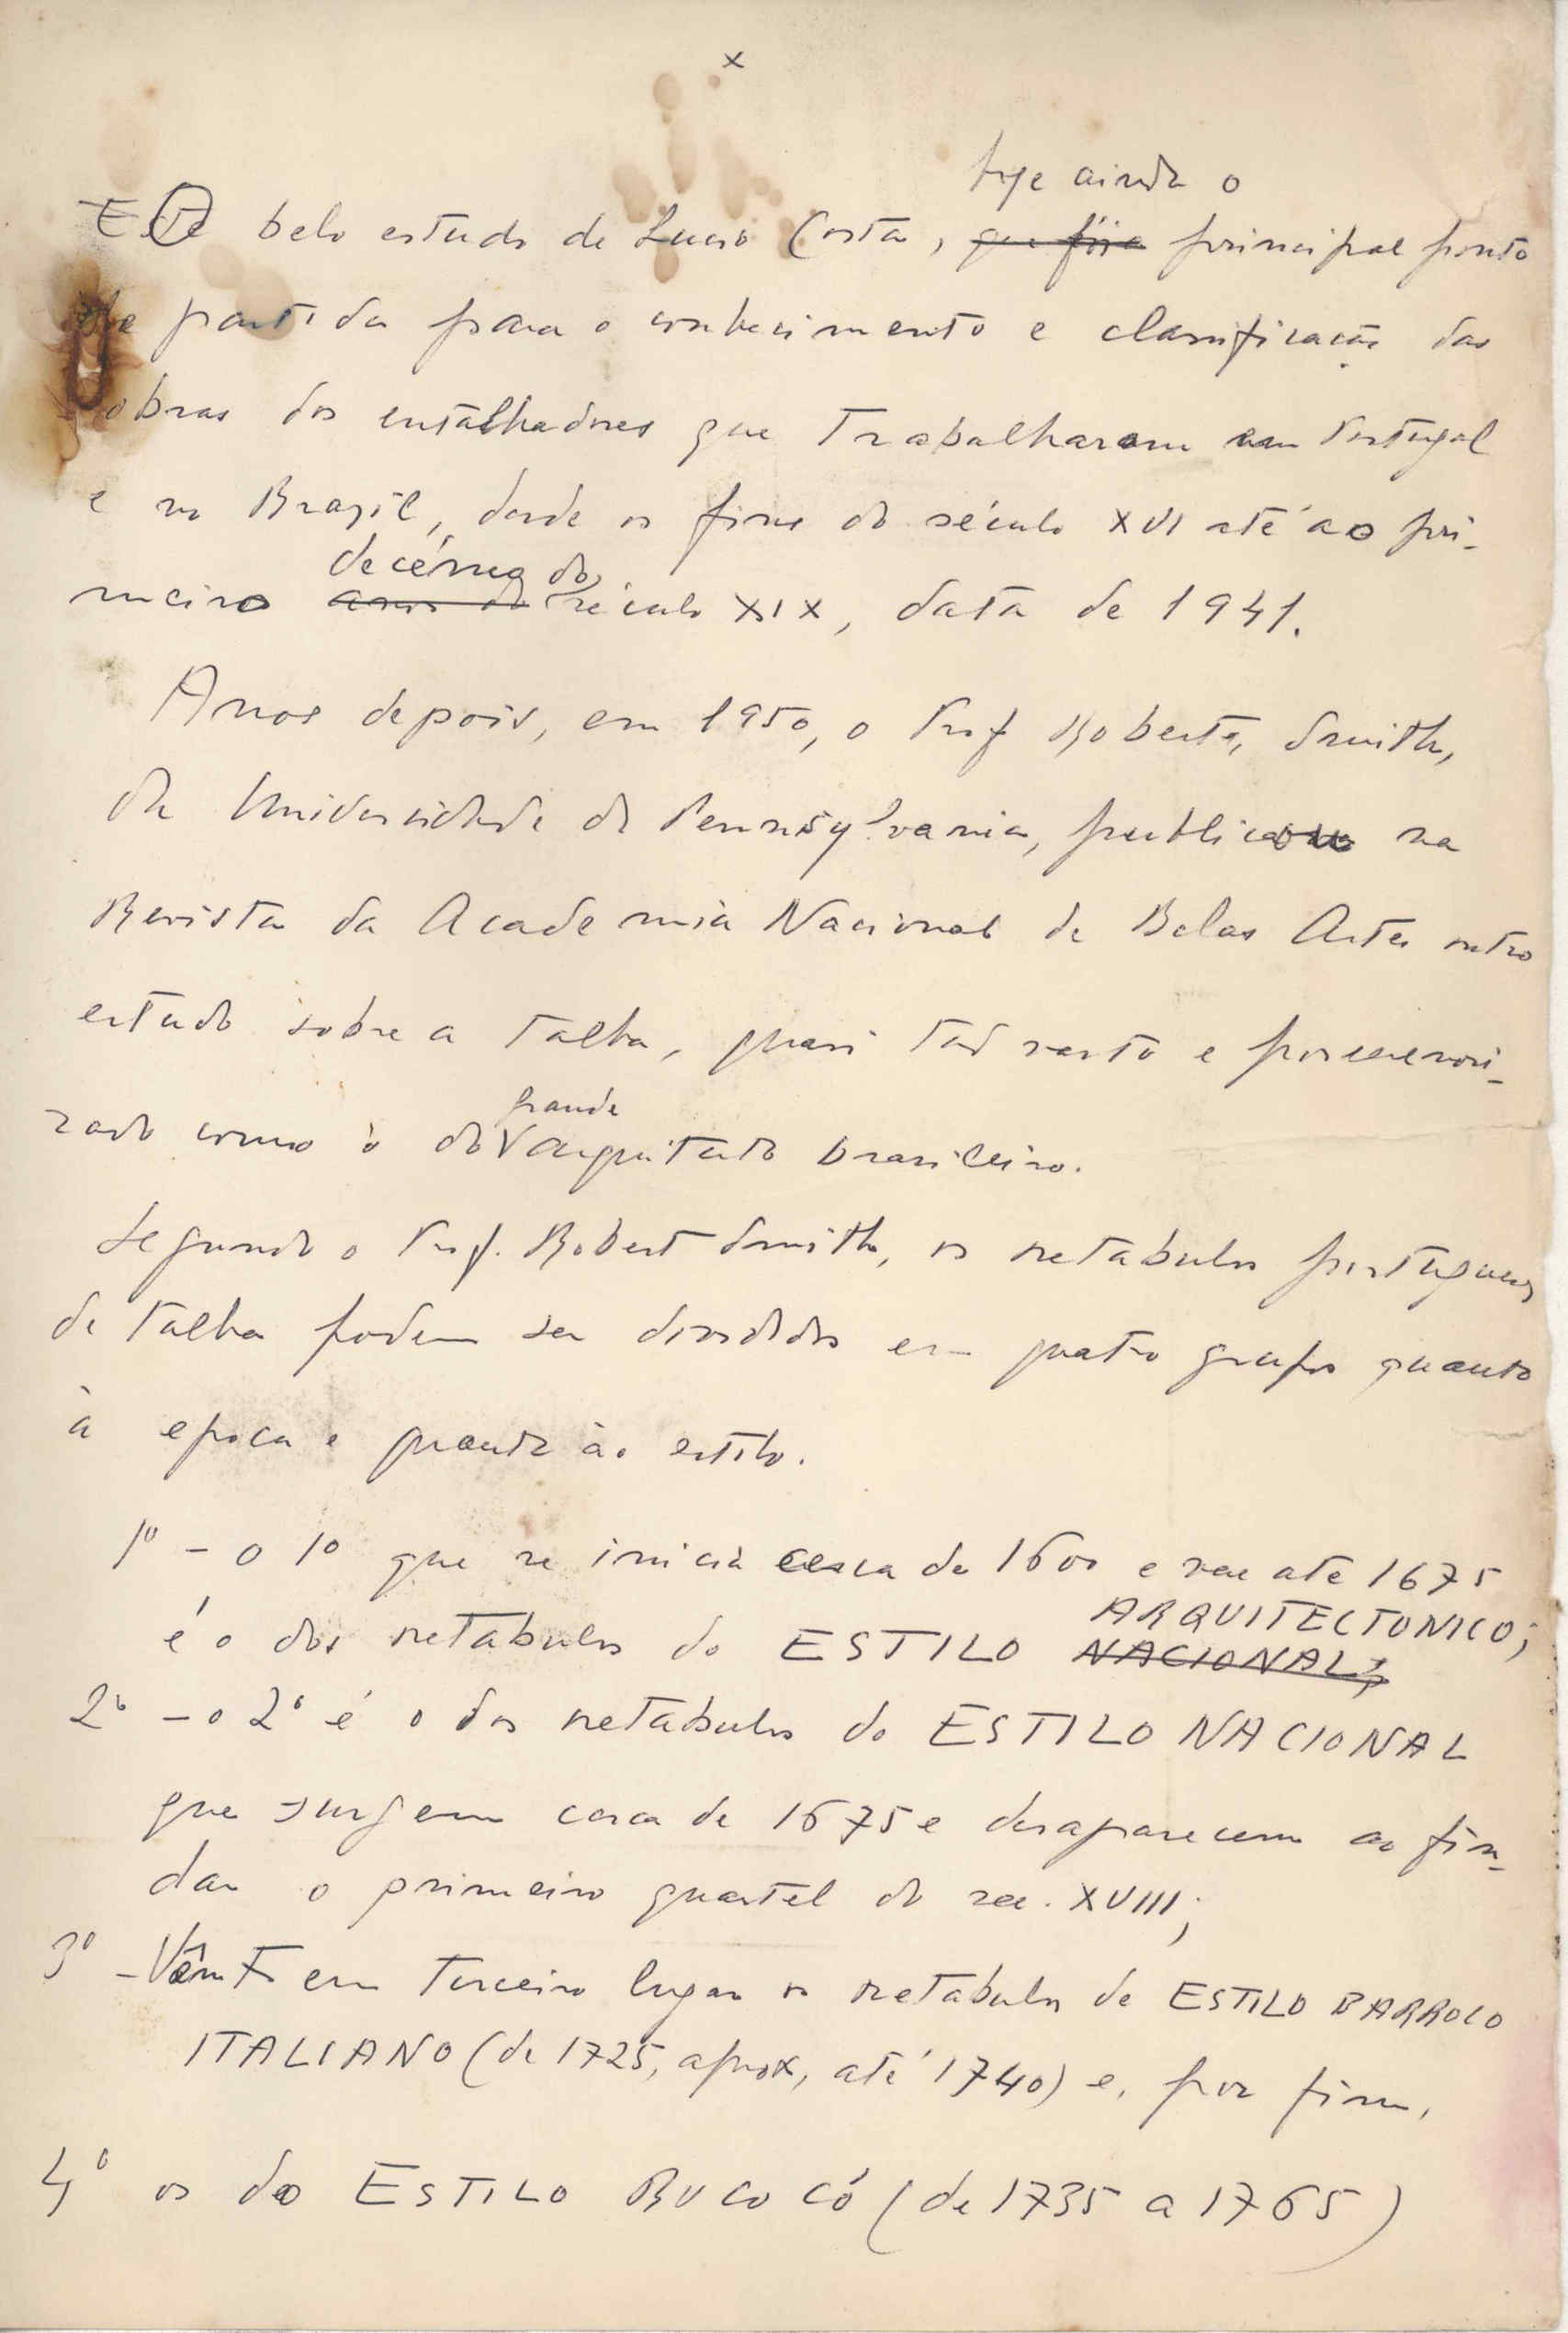 x
hoje ainda o
Este belo estudo de Lucio Costa, que foi principal ponto
de partida para o conhecimento e classificação das
obras dos entalhadores que trabalharam em Portugal
e no Brazil, desde os fins do século XVI até ao pri-
decénio do
meiro anos do século XIX, data de 1941.
Anos depois, em 1950, o Prof Robert Smith,
da Universidade de Pennsylvania, publicou na
Revista da Academia Nacional de Belas Artes outro
estudo sobre a talha, quasi tão vasto e pormenori-
grande
zado como o do arquitecto brasileiro.
Segundo o Prof. Robert Smith, os retabulos portugueses
de talha podem ser divididos em quatro grupos quanto
à epoca e quanto ao estilo.
1º - o 1º que se inicia cerca de 1600 e vae até 1675
ARQUITECTONICO;
é o dos retabulos do ESTILO NACIONAL;
2º - o 2º é o dos retabulos do ESTILO NACIONAL
que surgem cerca de 1675 e desaparecem ao fin-
dar o primeiro quartel do sec. XVIII;
3º - Vêm em terceiro lugar os retabulos de ESTILO BARROCO
ITALIANO (de 1725, aprox, até 1740) e, por fim,
4º os do ESTILO ROCOCÓ (de 1735 a 1765)